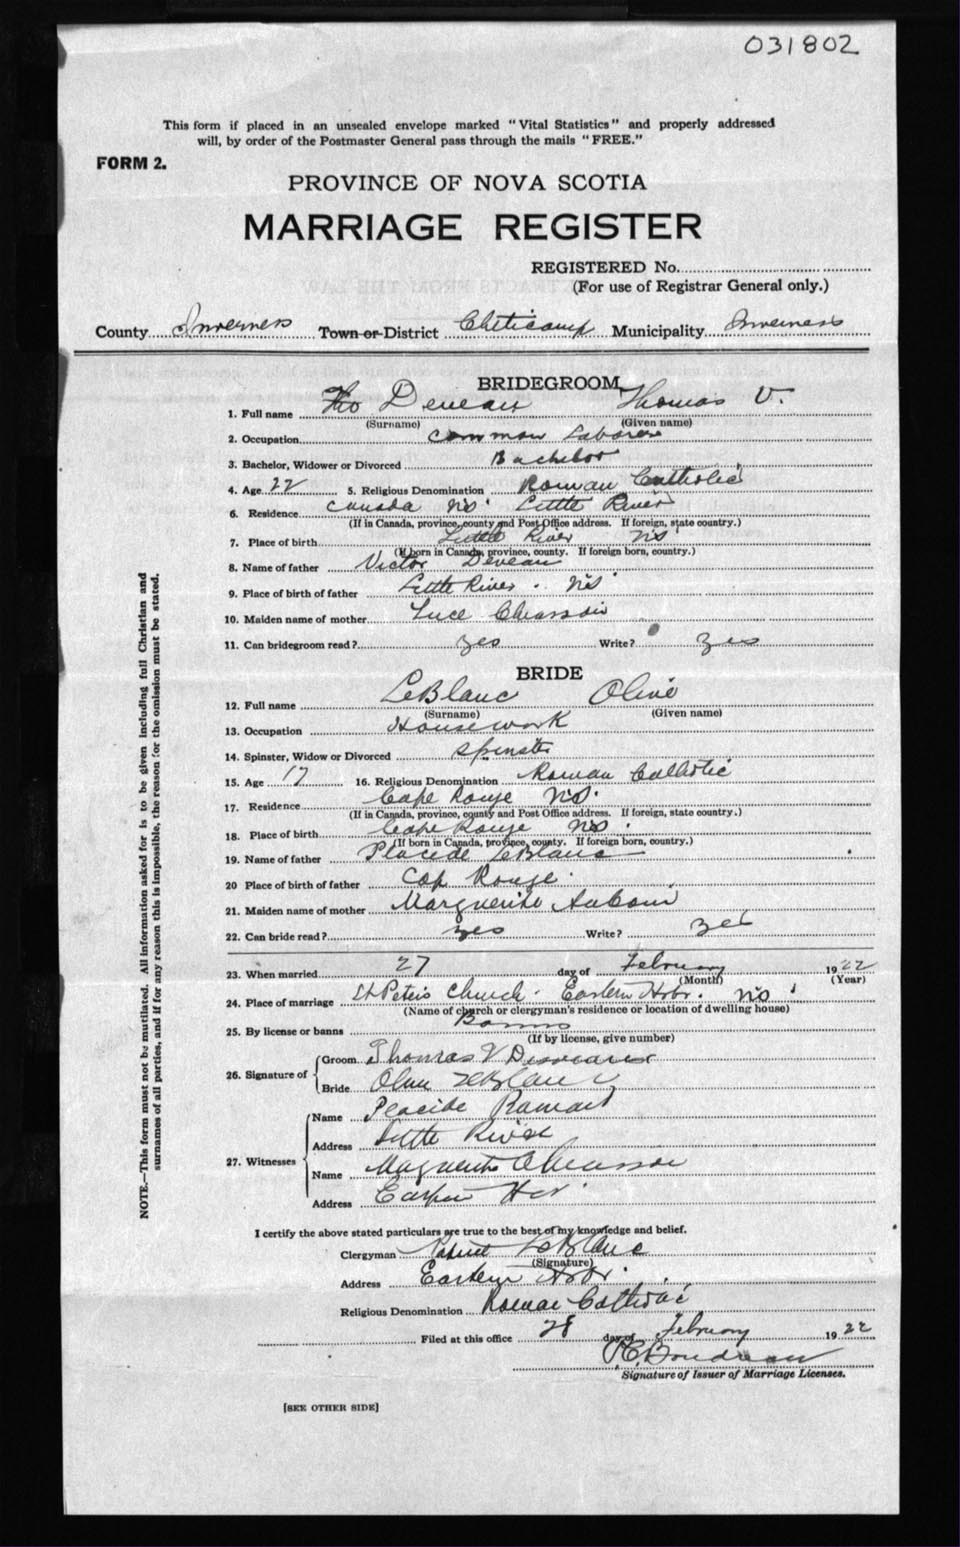 031802
This form if placed in an unsealed envelope marked "Vital Statistics" and properly addressed
will, by order of the Postmaster General pass through the mails "FREE."
FORM 2.
PROVINCE OF NOVA SCOTIA
MARRIAGE REGISTER
REGISTERED No.
(For use of Registrar General only.)
County Inverness Town or District Cheticamp Municipality Inverness
BRIDEGROOM
1. Full name Tho Deveau Thomas V.
(Surname) (Given name)
2. Occupation common Laborer
3. Bachelor, Widower or Divorced Bachelor
4. Age 22 5. Religious Denomination Roman Catholic
6. Residence Canada NS. Little River
(If in Canada, province, county and Post Office address. If foreign, state country.)
7. Place of birth Little River NS
(If born in Canada, province, county. If foreign born, country.)
8. Name of father Victor Deveau
9. Place of birth of father Little River. NS
10. Maiden name of mother Luce Chiasson
11. Can bridegroom read? yes Write? yes
BRIDE
12. Full name LeBlanc Olive
(Surname) (Given name)
13. Occupation Housework
14. Spinster, Widow or Divorced Spinster
15. Age 17 16. Religious Denomination Roman Catholic
17. Residence Cape Rouge NS.
(If in Canada, province, county and Post Office address. If foreign, state country.)
18. Place of birth Cape Rouge NS.
(If born in Canada, province, county. If foreign born, country.)
19. Name of father Placide LeBlanc
20 Place of birth of father Cap Rouge
21. Maiden name of mother Marguerite Aucoin
22. Can bride read? yes Write? yes
23. When married 27 day of February 1922
(Month) (Year)
24. Place of marriage St Peters Church. Eastern Hrbr. NS
(Name of church or clergyman's residence or location of dwelling house)
25. By license or banns Banns
(If by license, give number)
26. Signature of Groom Thomas V
Bride LeBlanc
27. Witnesses Name Placide
Address Little River
Name Chiasson
Address
I certify the above stated particulars are true to the best of my knowledge and belief.
Clergyman LeBlanc
(Signature)
Address Eastern Hrbr.
Religious Denomination Roman Catholic
Filed at this office 28 day of February 1922
Signature of Issuer of Marriage Licenses.
[SEE OTHER SIDE]
NOTE.—This form must not be mutilated. All information asked for is to be given including full Christian and
surnames of all parties, and if for any reason this is impossible, the reason for the omission must be stated.